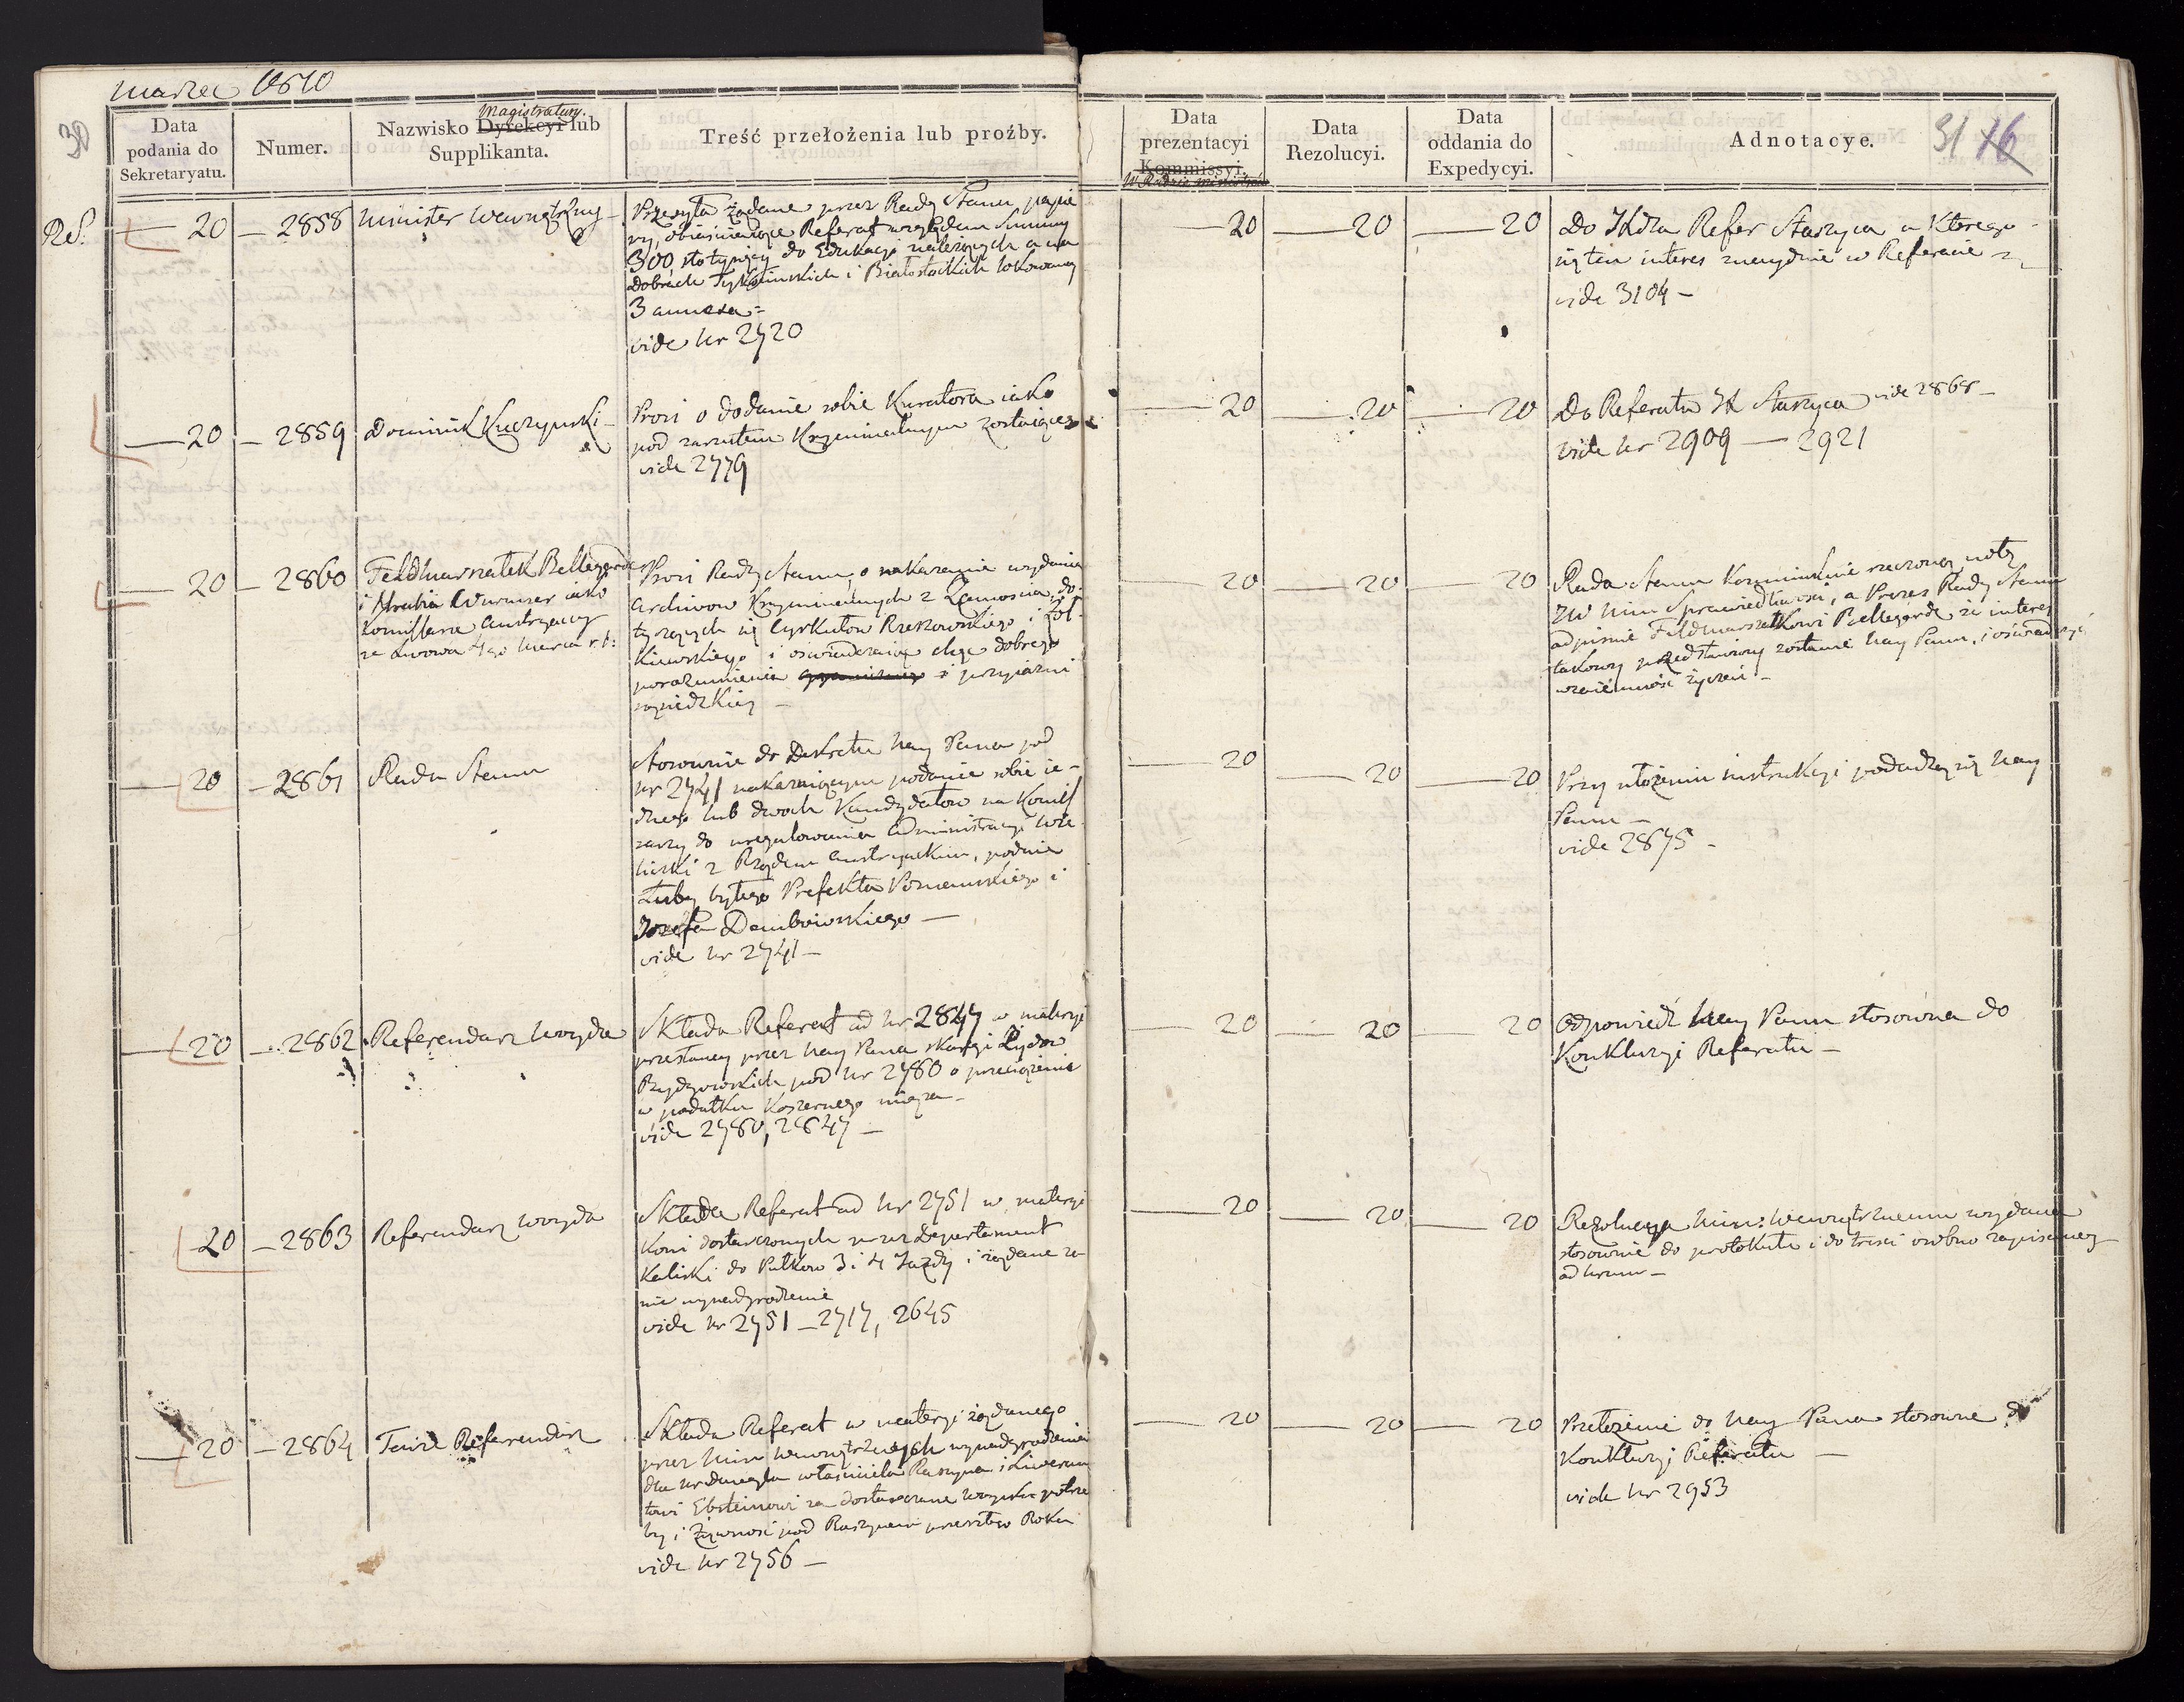 marzec 1810
30
Data
podania do
Sekretaryatu.
Numer.
Magistratury.
Nazwisko Dyrekcyi lub
Supplikanta.
Treść przełożenia lub proźby.
Data
prezentacyi
Kommissyi.
W Radzie Ministrów
Data
Rezolucyi.
Data
oddania do
Expedycyi.
Adnotacye.
31 16
Ref.
20 — 2858
Minister Wewnętrzny
Przesyła żądane przez Radę Stanu papie
ry, obiaśniaiące Referat względem Summy
300 stotysięcy do Edukacyi należących a na
dobrach Tykocińskich i Białostockich lokowaney
3 annexa =
vide Nr 2720
— 20 — 20 — 20
Do JKLa Refer Staszyca u którego
się ten interes znayduie w Referacie
vide 3104 —
— 20 — 2859
Dominik Kuczynski
Prosi o dodanie sobie Kuratora iako
pod zarzutem Kryminalnym zostaiące
vide 2779
— 20 — 20 — 20
Do Referatu JK Staszyca vide 2868 —
vide Nr 2909 — 2921
— 20 — 2860
Feldmarszałek Bellegarde
i Hrabia Wurmser iako
Komissarz Austryacy
ze Lwowa 4go Marca r. b:
Prosi Rady Stanu, o nakazanie wydania
Archiwow Kryminalnych z Zamościa, do-
tyczących się Cyrkułow Rzeszowskiego i Żoł-
kiewskiego i oświadczaią chęć dobrego
porozumienia i przyiaźni
sąsiedzkiey —
— 20 — 20 — 20
Rada Stanu Kommunikuie rzeczoną notę
JW Min Sprawiedliwości, a Prezes Rady Stanu
odpisuie Feldmarszałkowi Bellegarde że interes
takowy przedstawiony zostanie Nay Panu, i oświadcza
wzaiemność życzeń —
— 20 — 2861
Rada Stanu
Stosownie do Dekretu Nay Pana pod
Nr 2741 nakazuiącym podanie sobie ie-
dnego lub dwoch Kandydatow na Komiss
sarzy do uregulowania Administracyi Wie-
liczki z Rządem Austryackim, podaie
Łubę byłego Prefekta Poznanskiego i
Jozefa Dembowskiego —
vide Nr 2741 —
— 20 — 20 — 20
Przy ułożeniu instrukcyi podadzą się Nay
Panu —
vide 2875 —
— 20 — 2862
Referendarz Woyda
Składa Referat ad Nr 2847 w materyi
przesłaney przez Nay Pana skargi Żydow
Bydgowskich pod Nr 2780 o przeciążenie
w podatku Koszernego mięsa —
vide 2780, 2847 —
— 20 — 20 — 20
Odpowiedź Nay Panu stosowna do
Konkluzyi Referatu —
— 20 — 2863
Referendarz Woyda
Składa Referat ad Nr 2751 w materyi
Koni dostarczonych przez Departament
Kaliski do Pułkow 3 i 4 Jazdy i żądane za
nie wynadgrodzenie
vide Nr 2751 — 2717, 2645
— 20 — 20 — 20
Rezolucya Min: Wewnętrznemu wydana
stosownie do protokułu i do treści osobno zapisaney
ad Num —
— 20 — 2864
Tenże Referendarz
Składa Referat w materyi żądanego
przez Min Wewnętrznych wynadgrodzenia
dla właściciela Raszyna i Liweran
towi Ebsteinowi za dostarczane Woysku potrze
by i Żywność pod Raszynem przeszłego Roku
vide Nr 2756 —
— 20 — 20 — 20
Przełożenie do Nay Pana stosowne do
Konkluzyi Referatu —
vide Nr 2953